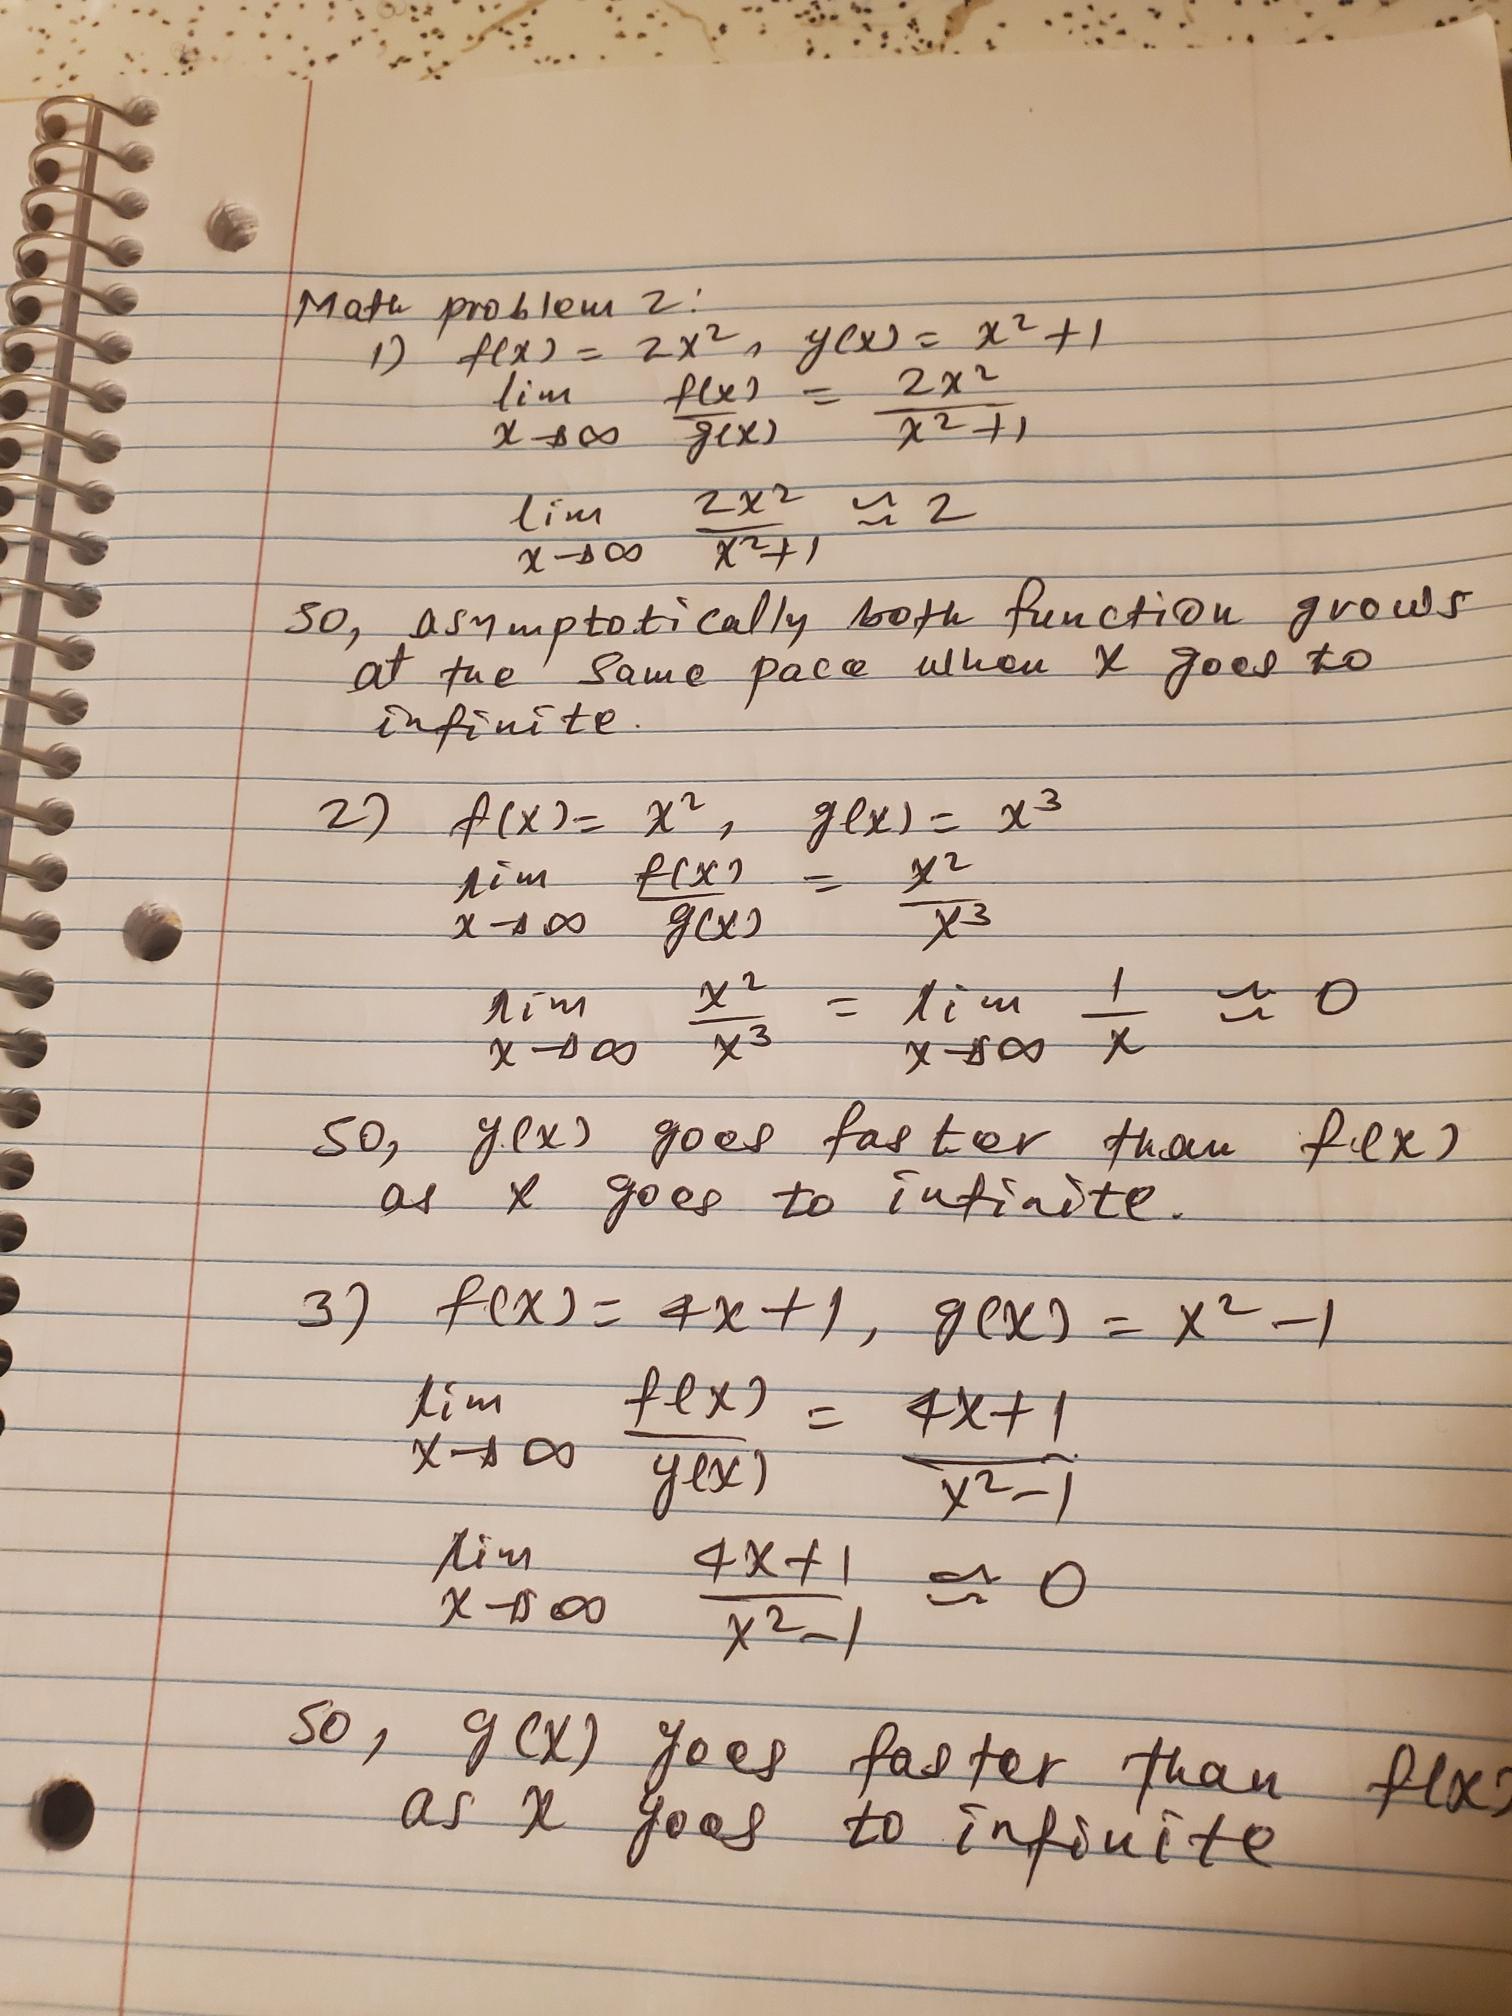 Math problem 2:
1) f(x) = 2x², g(x) = x² + 1
lim x→∞ f(x)/g(x) = 2x²/(x²+1)
lim x→∞ 2x²/(x²+1) ≈ 2
So, asymptotically both function grows
at the same pace when x goes to
infinite.
2) f(x) = x², g(x) = x³
lim x→∞ f(x)/g(x) = x²/x³
lim x→∞ x²/x³ = lim x→∞ 1/x ≈ 0
So, g(x) goes faster than f(x)
as x goes to infinite.
3) f(x) = 4x+1, g(x) = x²-1
lim x→∞ f(x)/g(x) = (4x+1)/(x²-1)
lim x→∞ (4x+1)/(x²-1) ≈ 0
So, g(x) goes faster than f(x)
as x goes to infinite